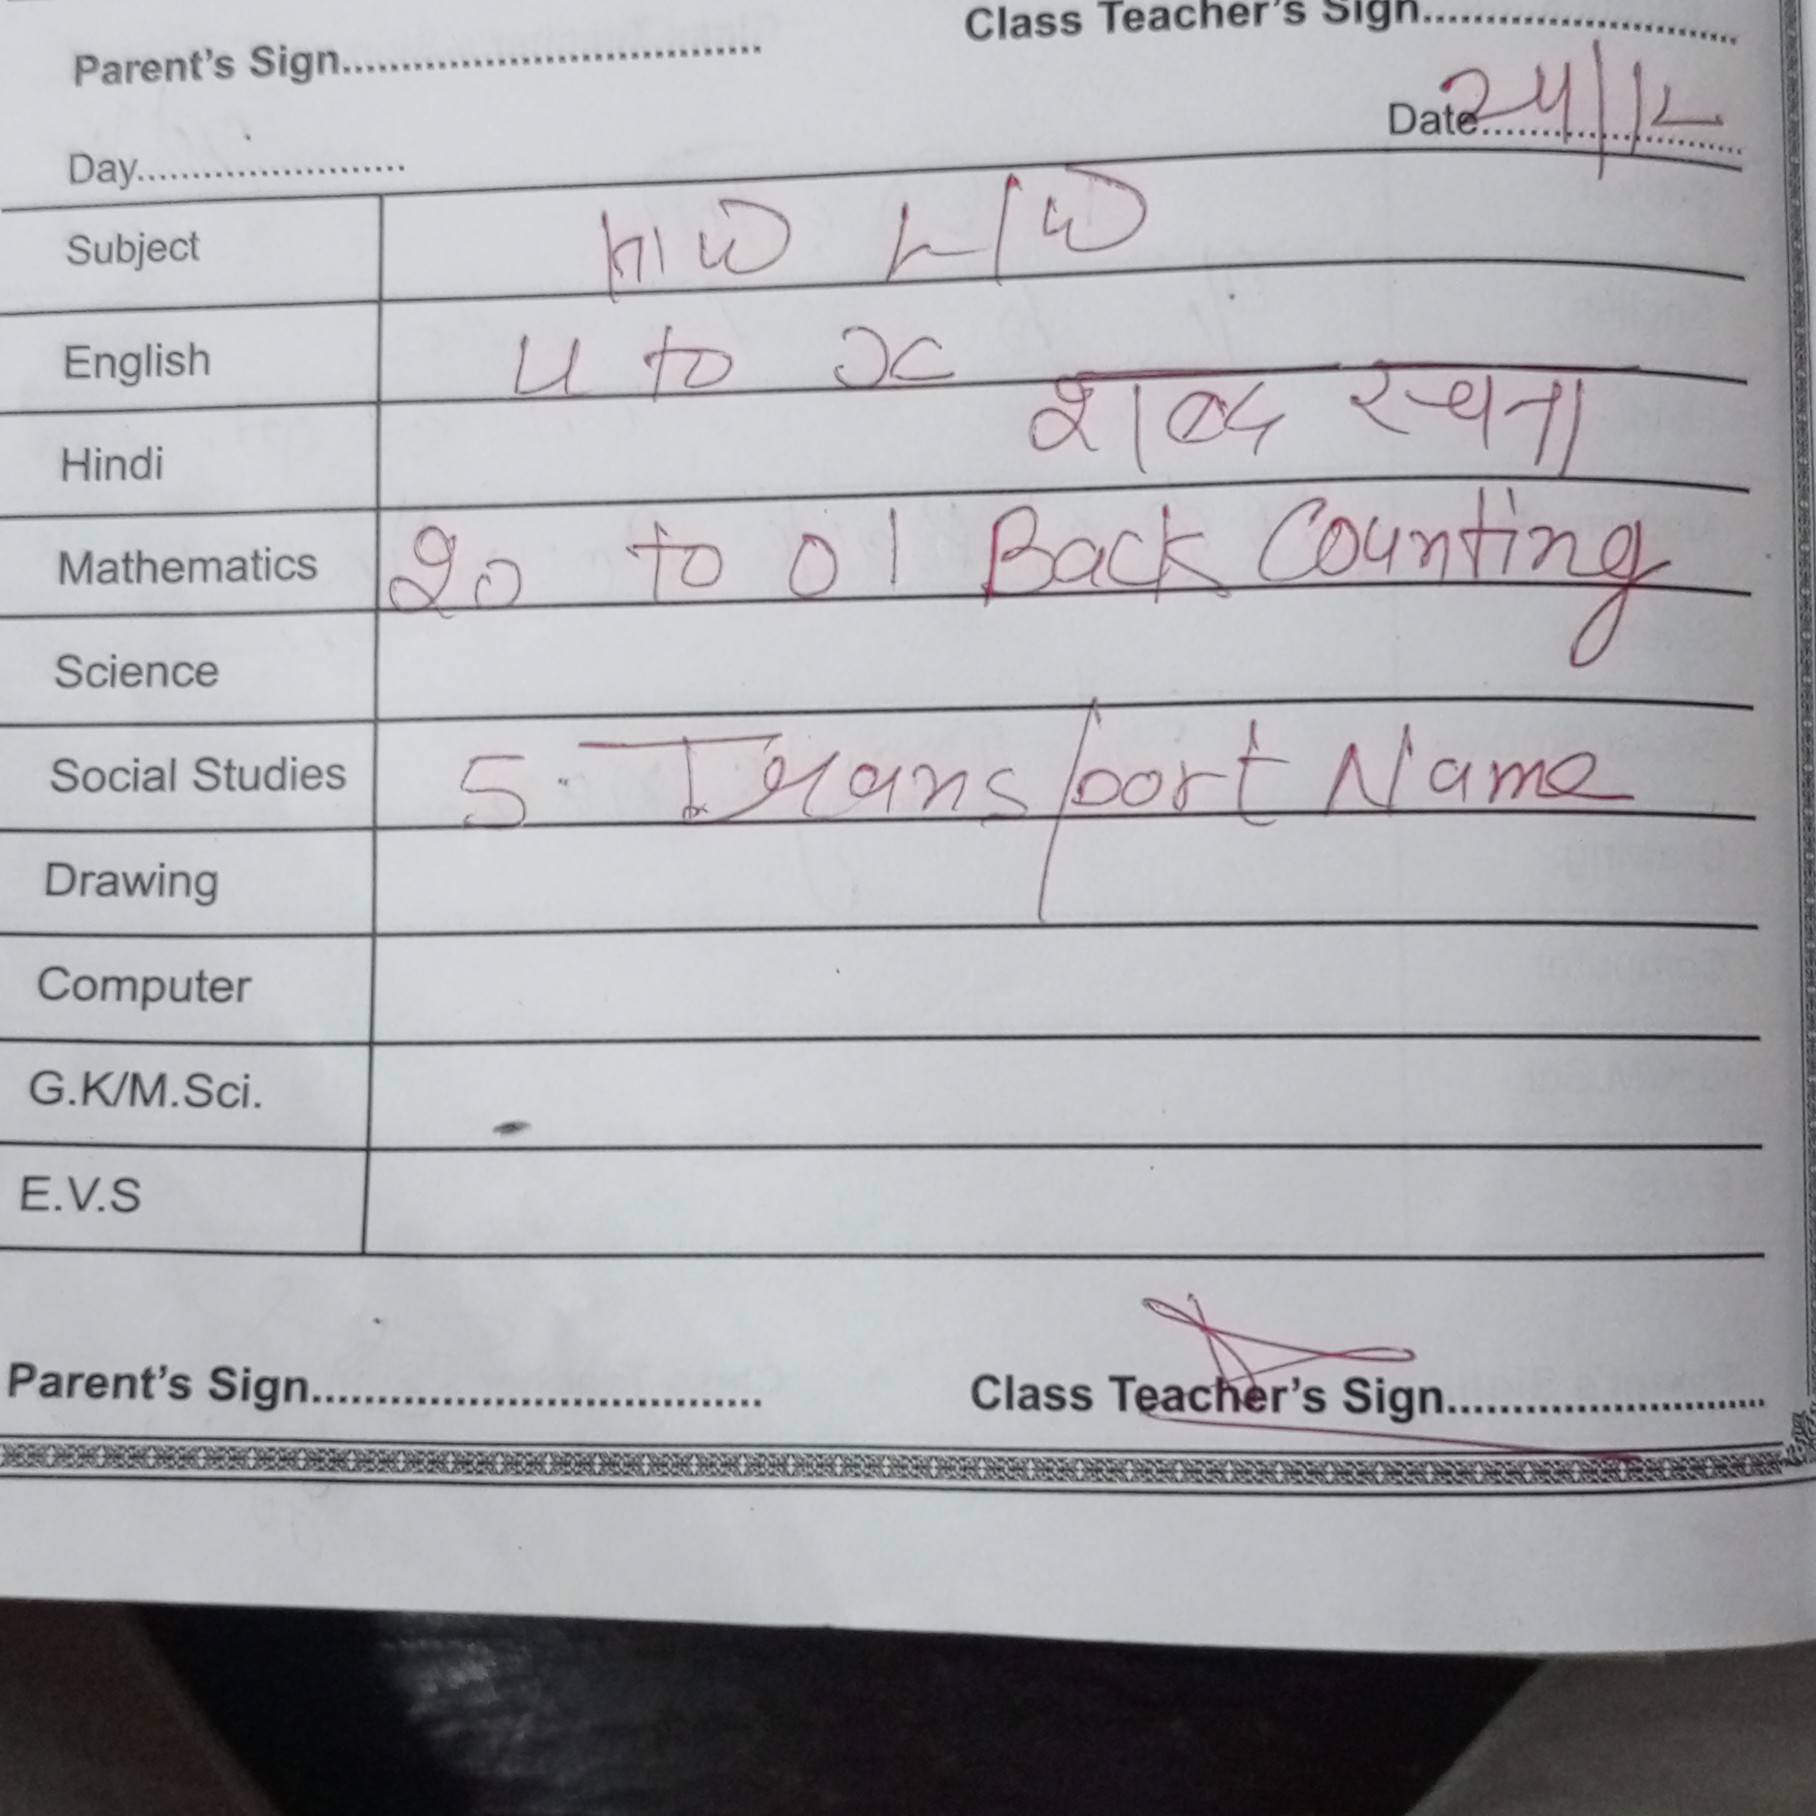 Parent's Sign.............................. Class Teacher's Sign..............................
Date 24/12
Day........................
Subject H/W L/W
English u to x
Hindi शब्द रचना
Mathematics 20 to 01 Back Counting
Science
Social Studies 5. Transport Name
Drawing
Computer
G.K/M.Sci.
E.V.S
Parent's Sign.............................. Class Teacher's Sign..............................